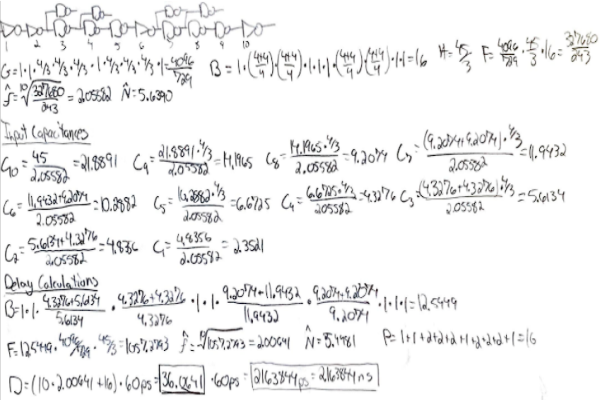 1 2 3 4 5 6 7 8 9 10
G=1·1·4/3·4/3·4/3·1·4/3·4/3·4/3·1=4096/729 B=1·(4+4/4)·(4+4/4)·1·1·1·(4+4/4)·(4+4/4)·1·1=16 H=45/3 F=4096/729·45/3·16=327680/243
f̂=10√327680/243=2.05582 N̂=5.6390
Input Capacitances
C10=45/2.05582=21.8891 C9=21.8891·4/3/2.05582=14.1965 C8=14.1965·4/3/2.05582=9.2074 C7=(9.2074+9.2074)·4/3/2.05582=11.9432
C6=11.9432+9.2074/2.05582=10.2882 C5=10.2882·4/3/2.05582=6.6725 C4=6.6725·4/3/2.05582=4.3276 C3=(4.3276+4.3276)·4/3/2.05582=5.6134
C2=5.6134+4.3276/2.05582=4.8356 C1=4.8356/2.05582=2.3521
Delay Calculations
B=1·1·4.3276+5.6134/5.6134·4.3276+4.3276/4.3276·1·1·9.2074+11.9432/11.9432·9.2074+9.2074/9.2074·1·1·1=12.5449
F=12.5449·4096/729·45/3=1057.2793 f̂=10√1057.2793=2.00641 N̂=5.4481 P=1+1+2+2+2+1+2+2+2+1=16
D=(10·2.00641+16)·60ps=36.0641·60ps=2163.844ps=2.163844ns